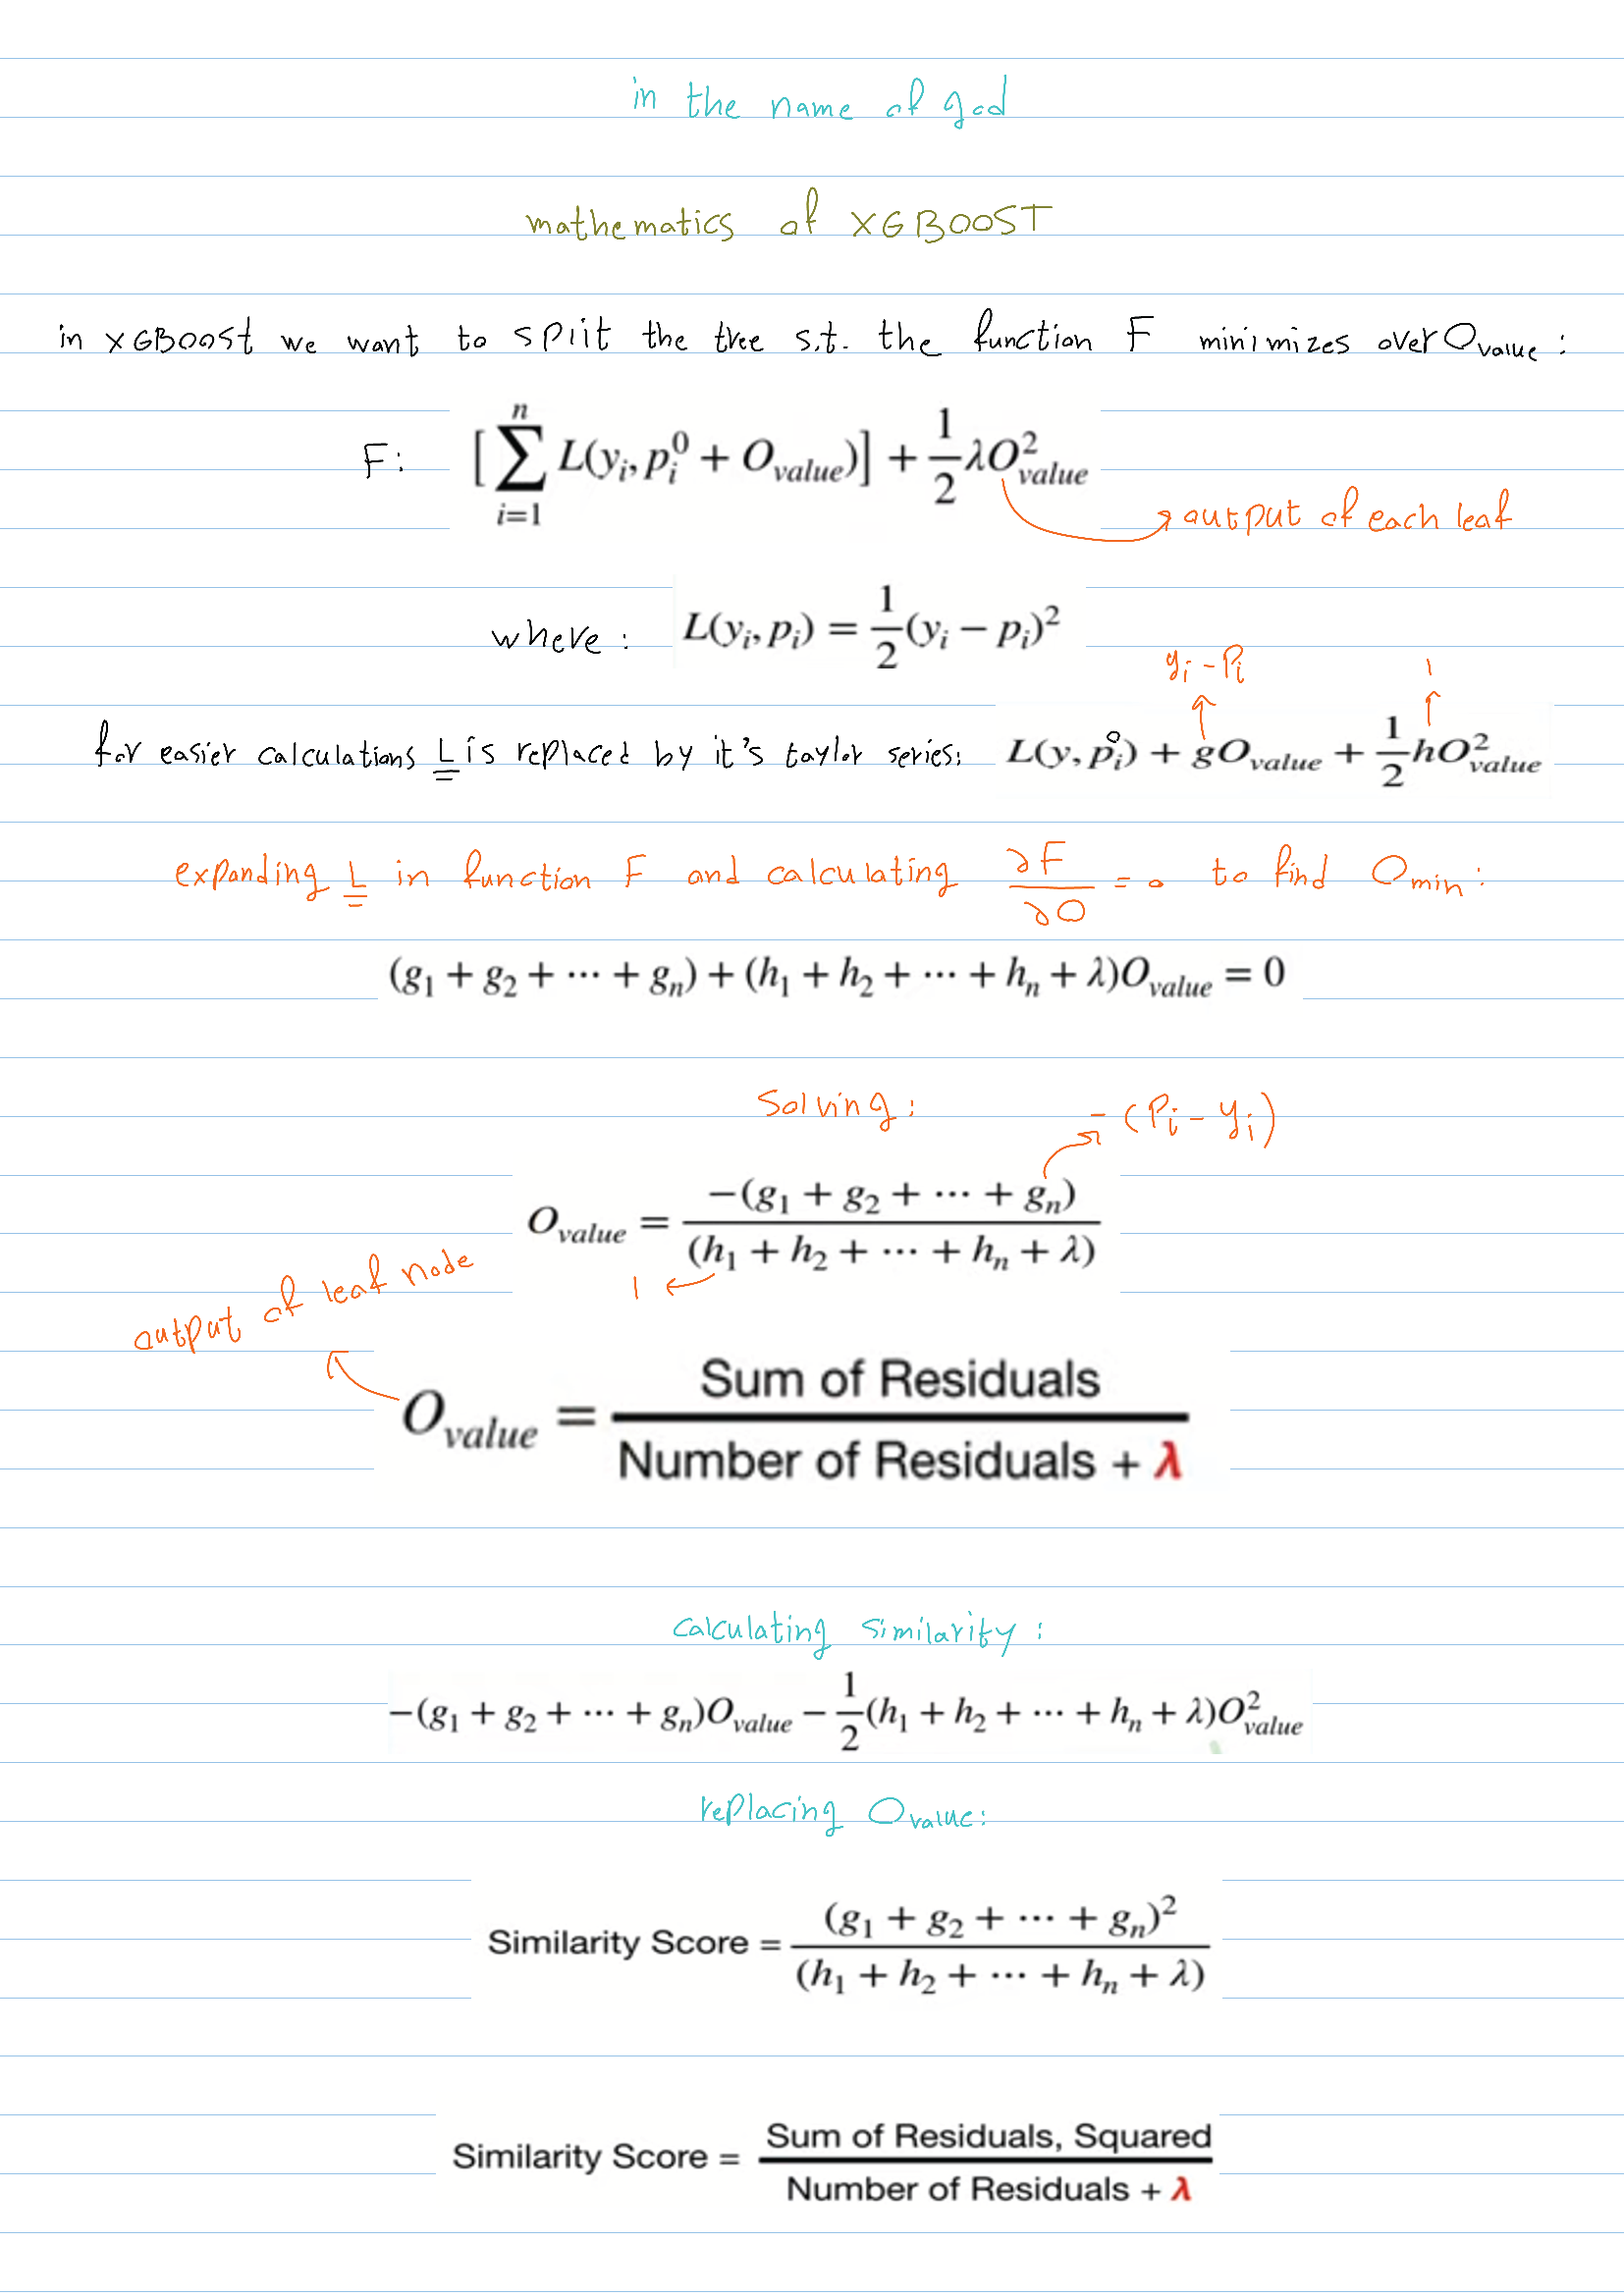 in the name of god
mathematics of XGBOOST
in XGBoost we want to split the tree s.t. the function F minimizes over O_value :
F: [ ∑_{i=1}^{n} L(y_i, p_i^0 + O_value)] + 1/2 λO²_value
output of each leaf
where : L(y_i, p_i) = 1/2 (y_i − p_i)²
y_i - P_i 1
for easier calculations L is replaced by it's taylor series: L(y, p_i^0) + gO_value + 1/2 hO²_value
expanding L in function F and calculating ∂F/∂O = 0 to find O_min :
(g_1 + g_2 + ⋯ + g_n) + (h_1 + h_2 + ⋯ + h_n + λ)O_value = 0
Solving : - (P_i - y_i)
O_value = −(g_1 + g_2 + ⋯ + g_n) / (h_1 + h_2 + ⋯ + h_n + λ)
1
output of leaf node
O_value = Sum of Residuals / Number of Residuals + λ
calculating similarity :
−(g_1 + g_2 + ⋯ + g_n)O_value − 1/2 (h_1 + h_2 + ⋯ + h_n + λ)O²_value
replacing O_value :
Similarity Score = (g_1 + g_2 + ⋯ + g_n)² / (h_1 + h_2 + ⋯ + h_n + λ)
Similarity Score = Sum of Residuals, Squared / Number of Residuals + λ